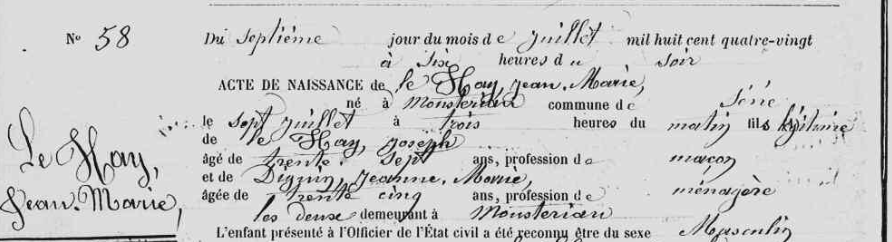 N° 58
Du Septième jour du mois de juillet mil huit cent quatre-vingt
à six heures du soir
ACTE DE NAISSANCE de le Hay, Jean-Marie,
né à Monsterian commune de Séné
le sept juillet à trois heures du matin fils légitime
de le Hay, Joseph
âgé de trente-sept ans, profession de maçon
et de Diguin, Jeanne-Marie,
âgée de trente cinq ans, profession de ménagère
les deux demeurant à Monsterian
L'enfant présenté à l'Officier de l'État civil a été reconnu être du sexe Masculin
Le Hay,
Jean-Marie,